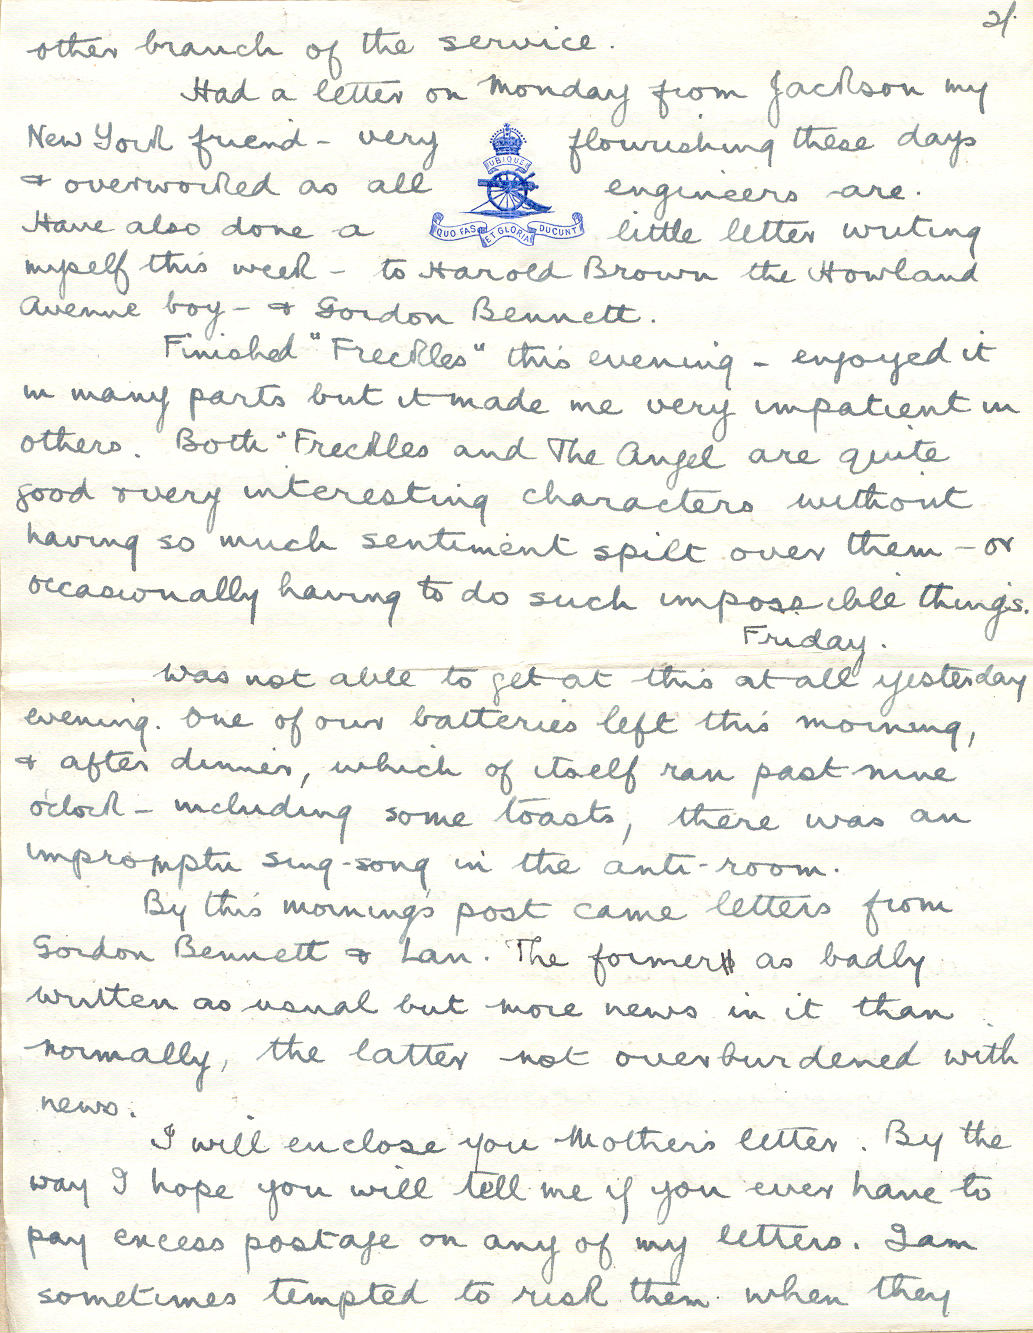 2/.
other branch of the service.
Had a letter on Monday from Jackson my
New York friend - very flourishing these days
& overworked as all engineers are.
Have also done a little letter writing
UBIQUE
QUO FAS ET GLORIA DUCUNT
myself this week - to Harold Brown the Howland
Avenue boy - & Gordon Bennett.
Finished "Freckles" this evening - enjoyed it
in many parts but it made me very impatient in
others. Both "Freckles and The Angel are quite
good & very interesting characters without
having so much sentiment spilt over them - or
occasionally having to do such impossible things.
Friday.
Was not able to get at this at all yesterday
evening. One of our batteries left this morning,
& after dinner, which of itself ran past nine
o'clock - including some toasts, there was an
impromptu sing-song in the anti-room.
By this morning's post came letters from
Gordon Bennett & Lan. The former as badly
written as usual but more news in it than
normally, the latter not overburdened with
news.
I will enclose you Mother's letter. By the
way I hope you will tell me if you ever have to
pay excess postage on any of my letters. I am
sometimes tempted to risk them when they